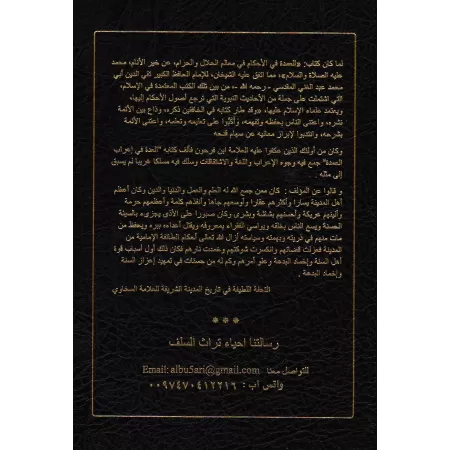 لما كان كتاب: «العمدة في الأحكام في معالم الحلال والحرام، عن خير الأنام، محمد
عليه الصلاة والسلام»، مما اتفق عليه الشيخان، للإمام الحافظ الكبير تقي الدين أبي
محمد عبد الغني المقدسي - رحمه الله -- من بين تلك الكتب المعتمدة في الإسلام،
التي اشتملت على جملة من الأحاديث النبوية التي ترجع أصول الأحكام إليها،
ويعتمد علماء الإسلام عليها، «وقد طار كتابه في الخافقين ذكره، وذاع بين الأئمة
نشره، واعتنى الناس بحفظه وتفهمه، وأكبُّوا على تعليمه وتعلمه، واعتنى الأئمة
بشرحه، وانتدبوا لإبراز معانيه عن سهام قدحه
وكان من أولئك الذين عكفوا عليه العلامة ابن فرحون فألف كتابه "العدة في إعراب
العمدة" جمع فيه وجوه الإعراب واللغة والاشتقاقات وسلك فيه مسلكا غريبا لم يسبق
إلى مثله . .
و قالوا عن المؤلف : كان ممن جمع الله له العلم والعمل والدنيا والدين وكان أعظم
أهل المدينة يسارا وأكثرهم عقارا وأوسعهم جاها وأنفذهم كلمة وأعظمهم حرمة
وألينهم عريكة وأحسنهم بشاشة وبشرى وكان صبورا على الأذى يجزىء بالسيئة
الحسنة ويسع للناس بخلقه ويواسي الفقراء بمعروفه ويقل أعداءه ببره ويحفظ من
مات منهم في ذريته وبهمته وسياسته أزال الله تعالى أحكام الطائفة الإمامية من
المدينة فعزلت قضاتهم وانكسرت شوكتهم وخمدت نارهم فكان ذلك أول أسباب قوة
أهل السنة وإخماد البدعة وعلو أمرهم وكم له من حسنات في تمهيد إعزاز السنة
وإخماد البدعة .
التحفة اللطيفة في تاريخ المدينة الشريفة للعلامة السخاوي
* * *
رسالتنا احياء تراث السلف
للتواصل معنا Email: albu5ari@gmail.com
واتس اب : ٠٠٩٧٤٧٠٤١٢٢١٦